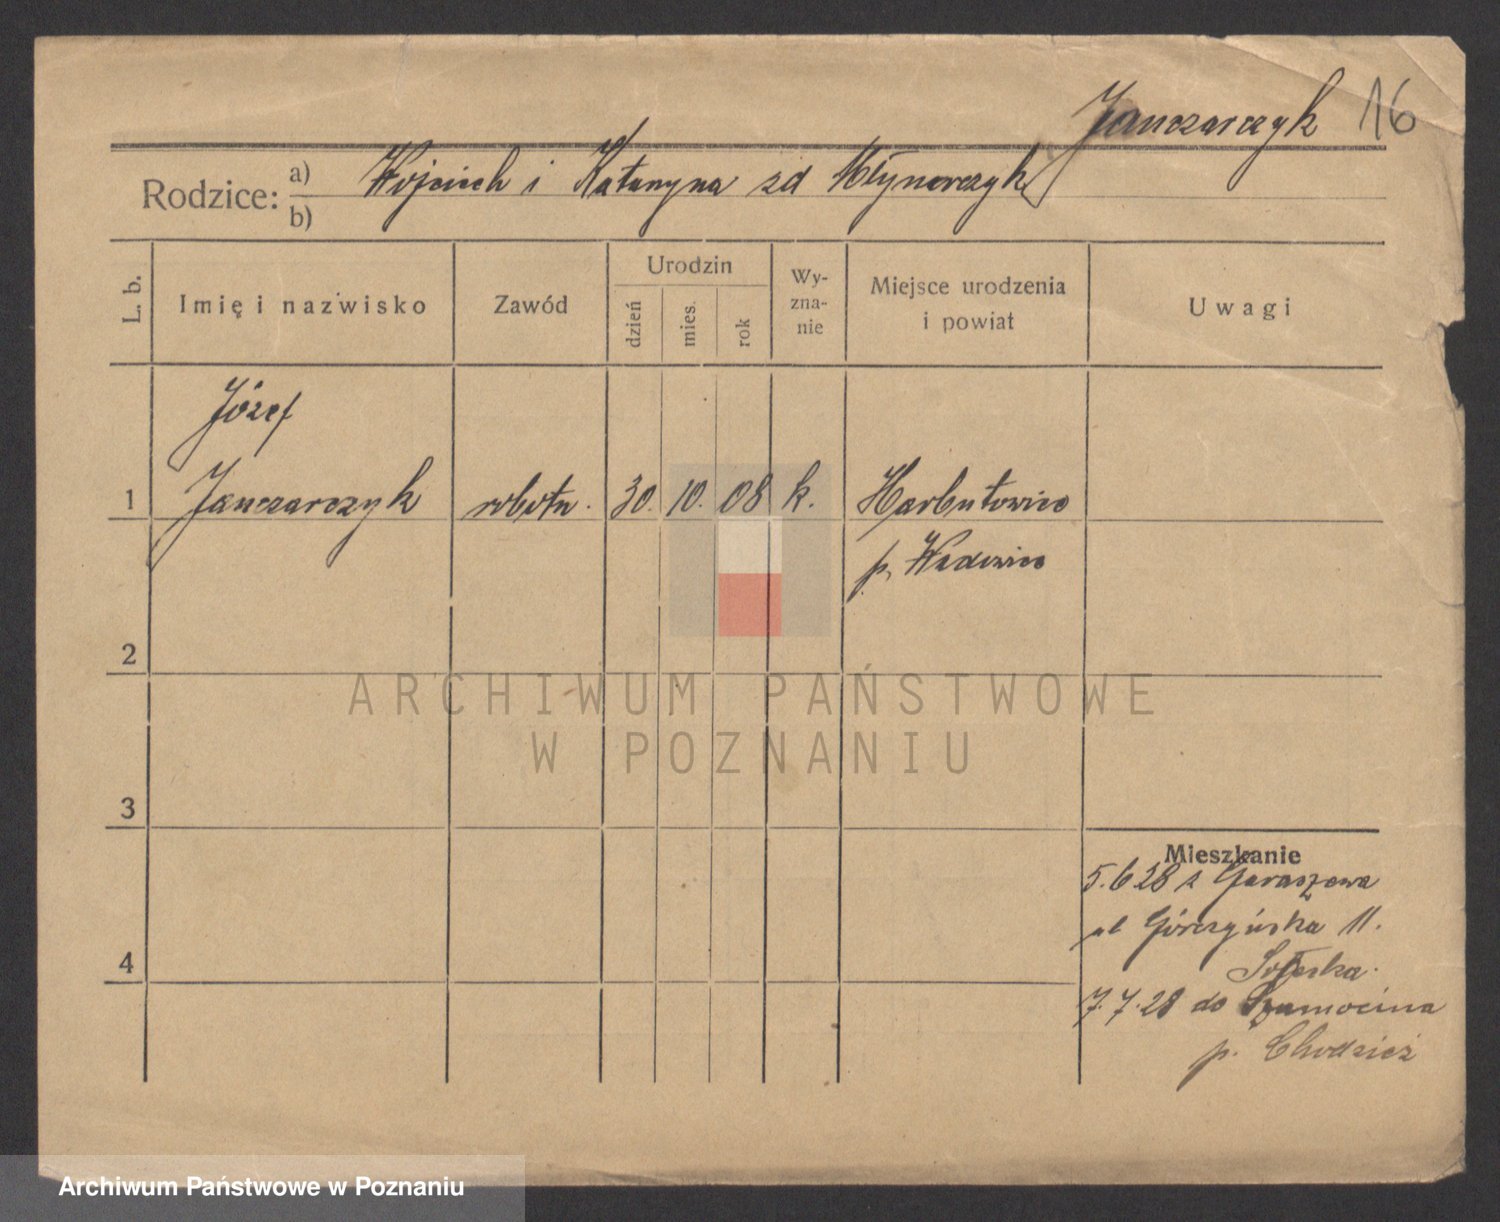 Janczarczyk 16
Rodzice: a) Wojciech i Katarzyna zd Młynarczyk
b)
L. b.
Imię i nazwisko
Zawód
Urodzin
dzień
mies.
rok
Wy-
zna-
nie
Miejsce urodzenia
i powiat
Uwagi
Józef
1 Janczarczyk robotn. 30. 10. 08 k. Harbutowice
p. Wadowice
2
ARCHIWUM PAŃSTWOWE
W POZNANIU
3
Mieszkanie
5.6 28 z Garaszewa
ul Górczyńska 11.
4
7.7.28 do Szamocina
p. Chodzież
Archiwum Państwowe w Poznaniu